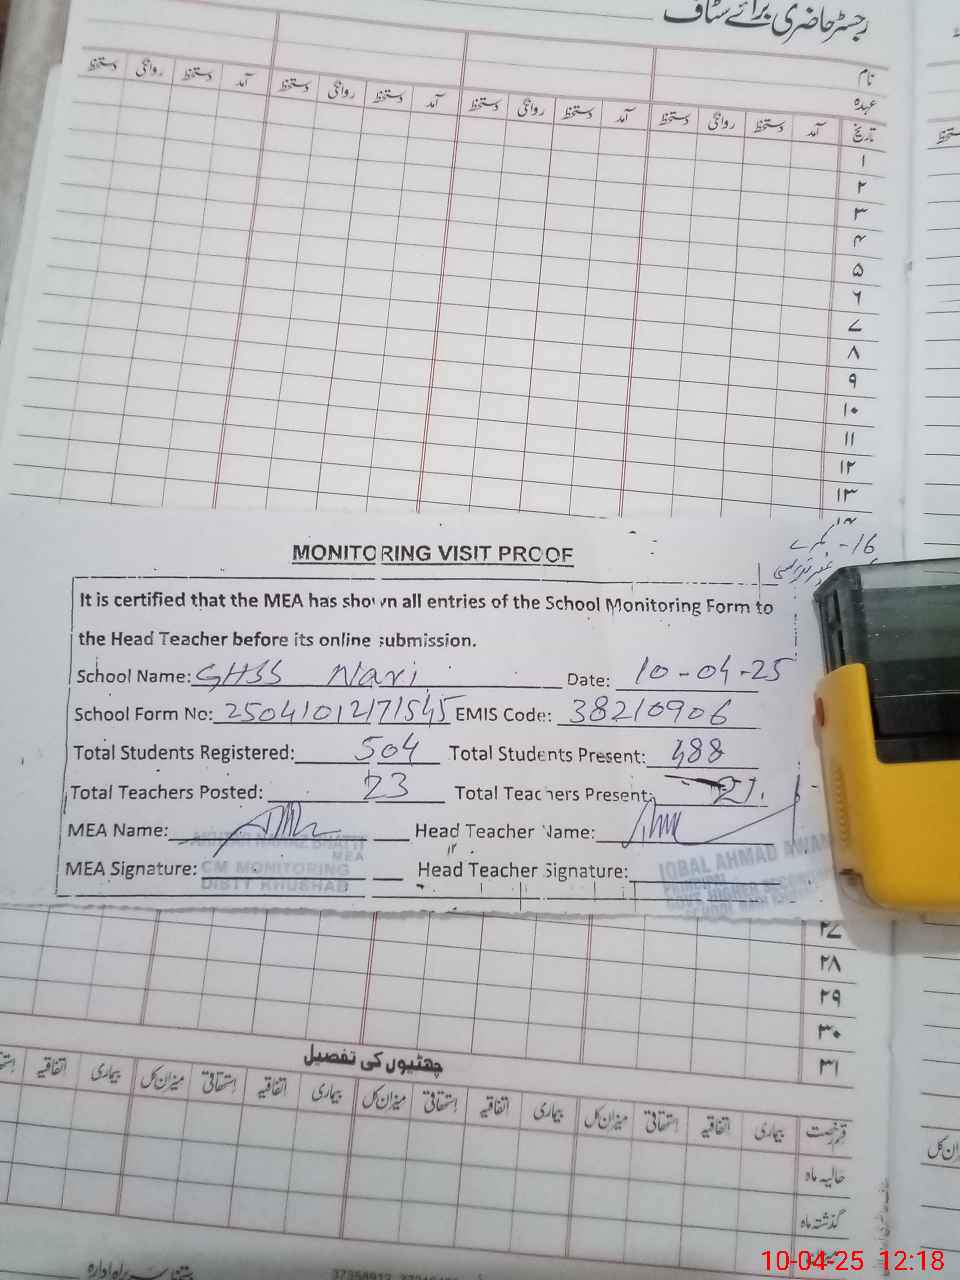 رجسٹر حاضری برائے سٹاف
نام
عہدہ
تاریخ آمد دستخط روانگی دستخط آمد دستخط روانگی دستخط آمد دستخط روانگی دستخط آمد دستخط روانگی دستخط
۱
۲
۳
۴
۵
۶
۷
۸
۹
۱۰
۱۱
۱۲
۱۳
۱۴
16-
MONITORING VISIT PROOF
It is certified that the MEA has shown all entries of the School Monitoring Form to
the Head Teacher before its online submission.
School Name: GHSS Nari Date: 10-04-25
School Form No: 25041012171545 EMIS Code: 38210906
Total Students Registered: 504 Total Students Present: 488
Total Teachers Posted: 23 Total Teachers Present: 21.
MEA Name: Head Teacher Name:
MEA
MEA Signature: CM MONITORING Head Teacher Signature: IQBAL AHMAD AWAN
DISTT KHUSHAB PRINCIPAL
۲۷
۲۸
۲۹
۳۰
۳۱
چھٹیوں کی تفصیل
قسم رخصت بیماری اتفاقیہ استحقاقی میزان کل بیماری اتفاقیہ استحقاقی میزان کل بیماری اتفاقیہ استحقاقی میزان کل بیماری اتفاقیہ
حالیہ ماہ
گذشتہ ماہ
دستخط سربراہ ادارہ
10-04-25 12:18